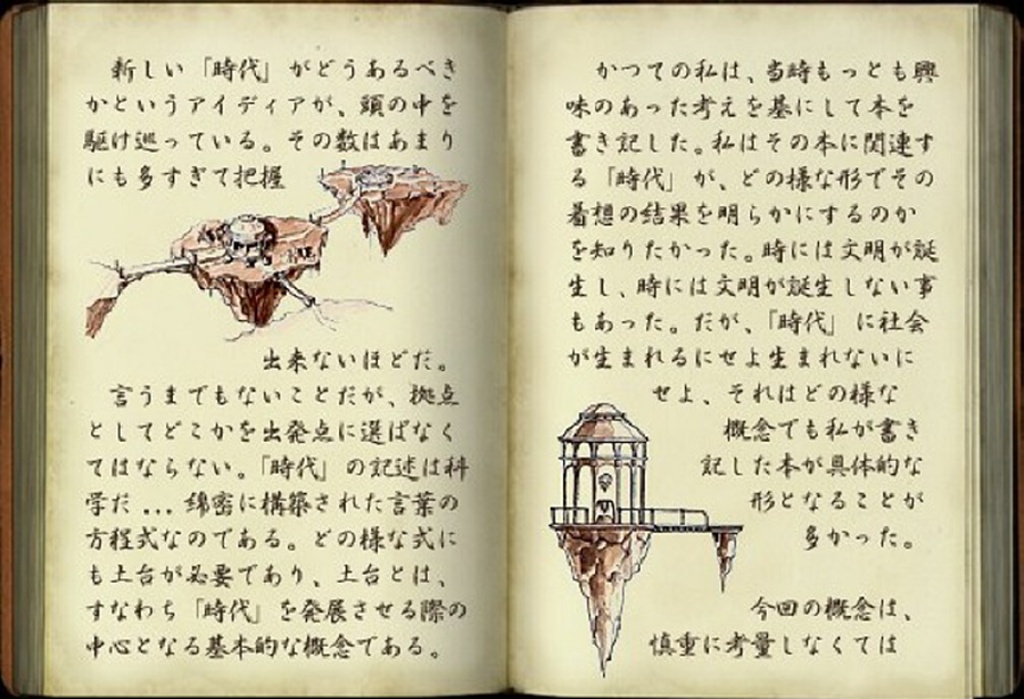 新しい「時代」がどうあるべき
かというアイディアが、頭の中を
駆け巡っている。その数はあまり
にも多すぎて把握
出来ないほどだ。
言うまでもないことだが、拠点
としてどこかを出発点に選ばなく
てはならない。「時代」の記述は科
学だ...綿密に構築された言葉の
方程式なのである。どの様な式に
も土台が必要であり、土台とは、
すなわち「時代」を発展させる際の
中心となる基本的な概念である。
かつての私は、当時もっとも興
味のあった考えを基にして本を
書き記した。私はその本に関連す
る「時代」が、どの様な形でその
着想の結果を明らかにするのか
を知りたかった。時には文明が誕
生し、時には文明が誕生しない事
もあった。だが、「時代」に社会
が生まれるにせよ生まれないに
せよ、それはどの様な
概念でも私が書き
記した本が具体的な
形となることが
多かった。
今回の概念は、
慎重に考量しなくては